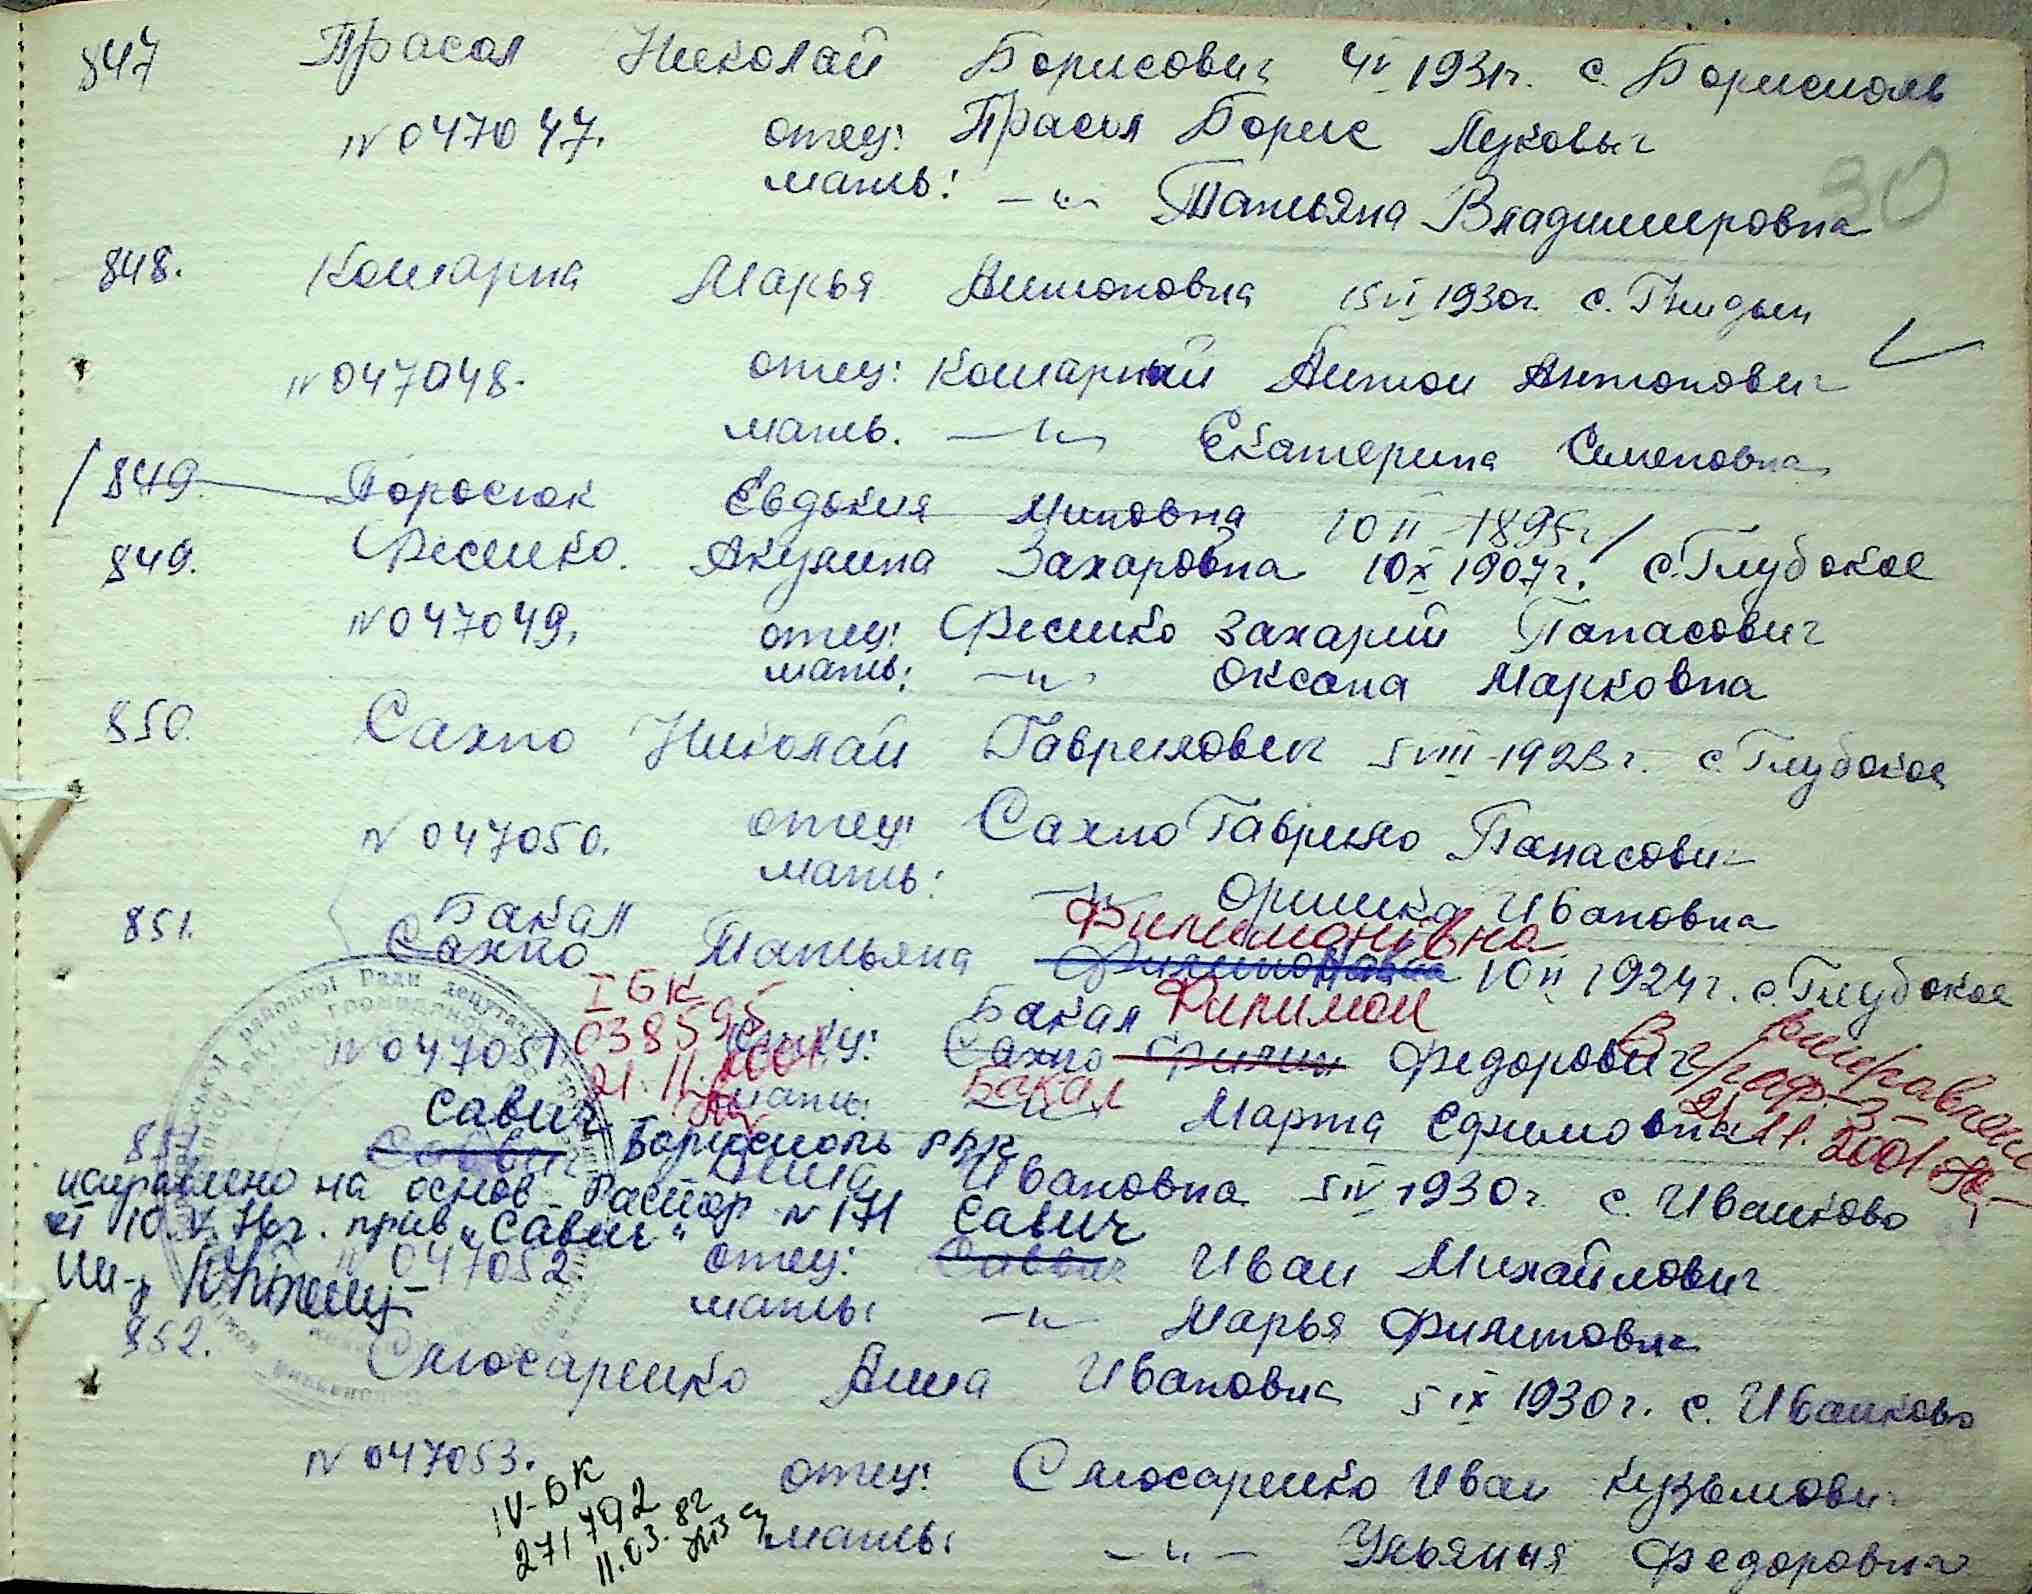 847 Прасол Николай Борисович 4 IV 1931г. с. Борисполь
N 047047. отец: Прасол Борис Лукович
30
мать: —"— Татьяна Владимировна
848. Комарна Марья Антоновна 15 VI 1930г. с. Гнидын
N 047048. отец: Комарный Антон Антонович
мать. —"— Екатерина Семеновна
849. Поросюк Евдокия Миновна 10 II 1895г.
849. Фесенко Акулина Захаровна 10 X 1907г. с. Глубокое
N 047049. отец: Фесенко Захарий Панасович
мать: —"— Оксана Марковна
850. Сахно Николай Гаврилович 5 VIII 1923г. с. Глубокое
N 047050. отец: Сахно Гаврило Панасович
мать: —"— Оришка Ивановна
Бакал Филимоновна
851. Сахно Татьяна 10 II 1924г. с. Глубокое
I БК
Бакал Филимон
N 047051. 038595 отец: Сахно Филип Федорович
21.11.2001
Бакал
мать: —"— Марта Ефимовна
В граф. 3 исправлено
21.11.2001
Савич Борисполь
851. Саввич Анна Ивановна 5 IV 1930г. с. Иванково
исправлено на основ. Распор N 171
от 10.V.76г. прив „Савич" Савич
N 047052. отец: Саввич Иван Михайлович
мать: —"— Марья Филиповна
852. Слюсаренко Анна Ивановна 5 IX 1930г. с. Иванково
N 047053. отец: Слюсаренко Иван Кузьмович
IV-БК
271792
11.03.82
мать: —"— Ульяния Федоровна